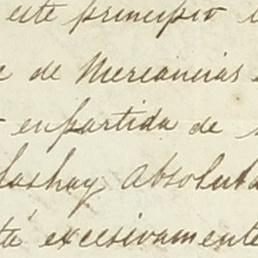 este principio
de Mercancias
en partida de
las hay Absoluta
excesivamente